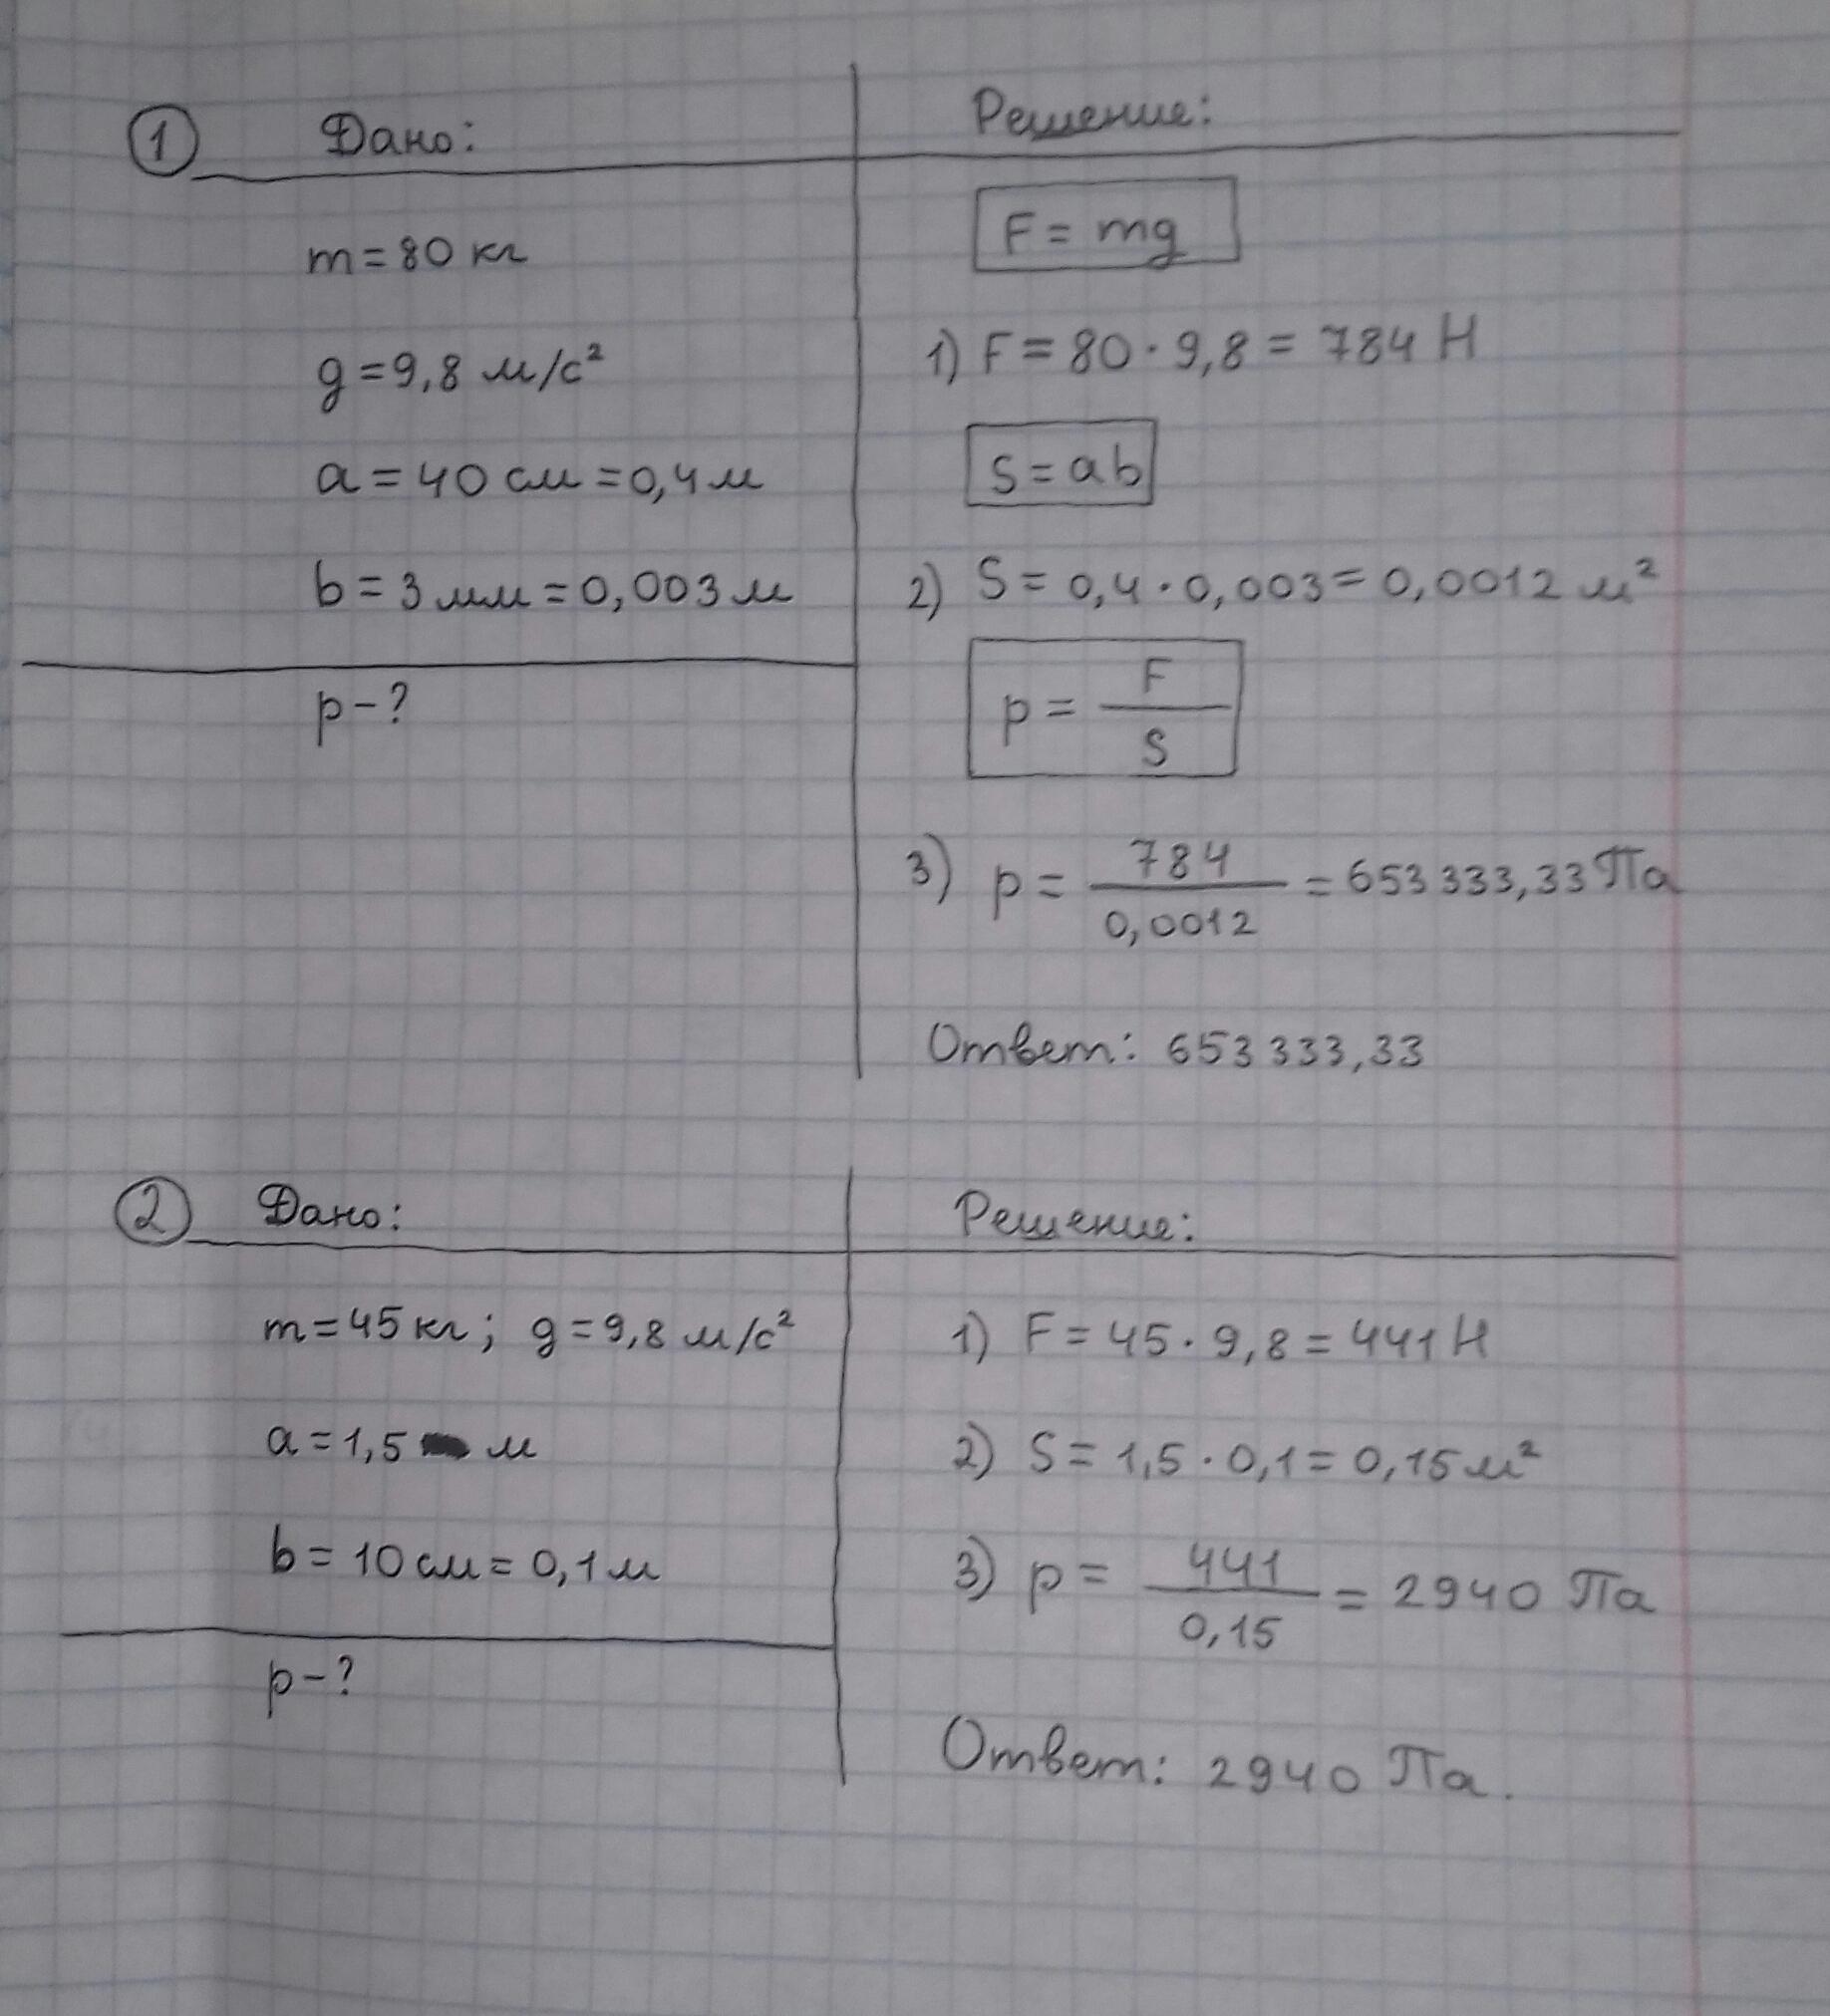 ① Дано:
m = 80 кг
g = 9,8 м/с²
a = 40 см = 0,4 м
b = 3 мм = 0,003 м
p - ?
Решение:
F = mg
1) F = 80 · 9,8 = 784 Н
S = ab
2) S = 0,4 · 0,003 = 0,0012 м²
p = F/S
3) p = 784/0,0012 = 653 333,33 Па
Ответ: 653 333,33
② Дано:
m = 45 кг; g = 9,8 м/с²
a = 1,5 м
b = 10 см = 0,1 м
p - ?
Решение:
1) F = 45 · 9,8 = 441 Н
2) S = 1,5 · 0,1 = 0,15 м²
3) p = 441/0,15 = 2940 Па
Ответ: 2940 Па.